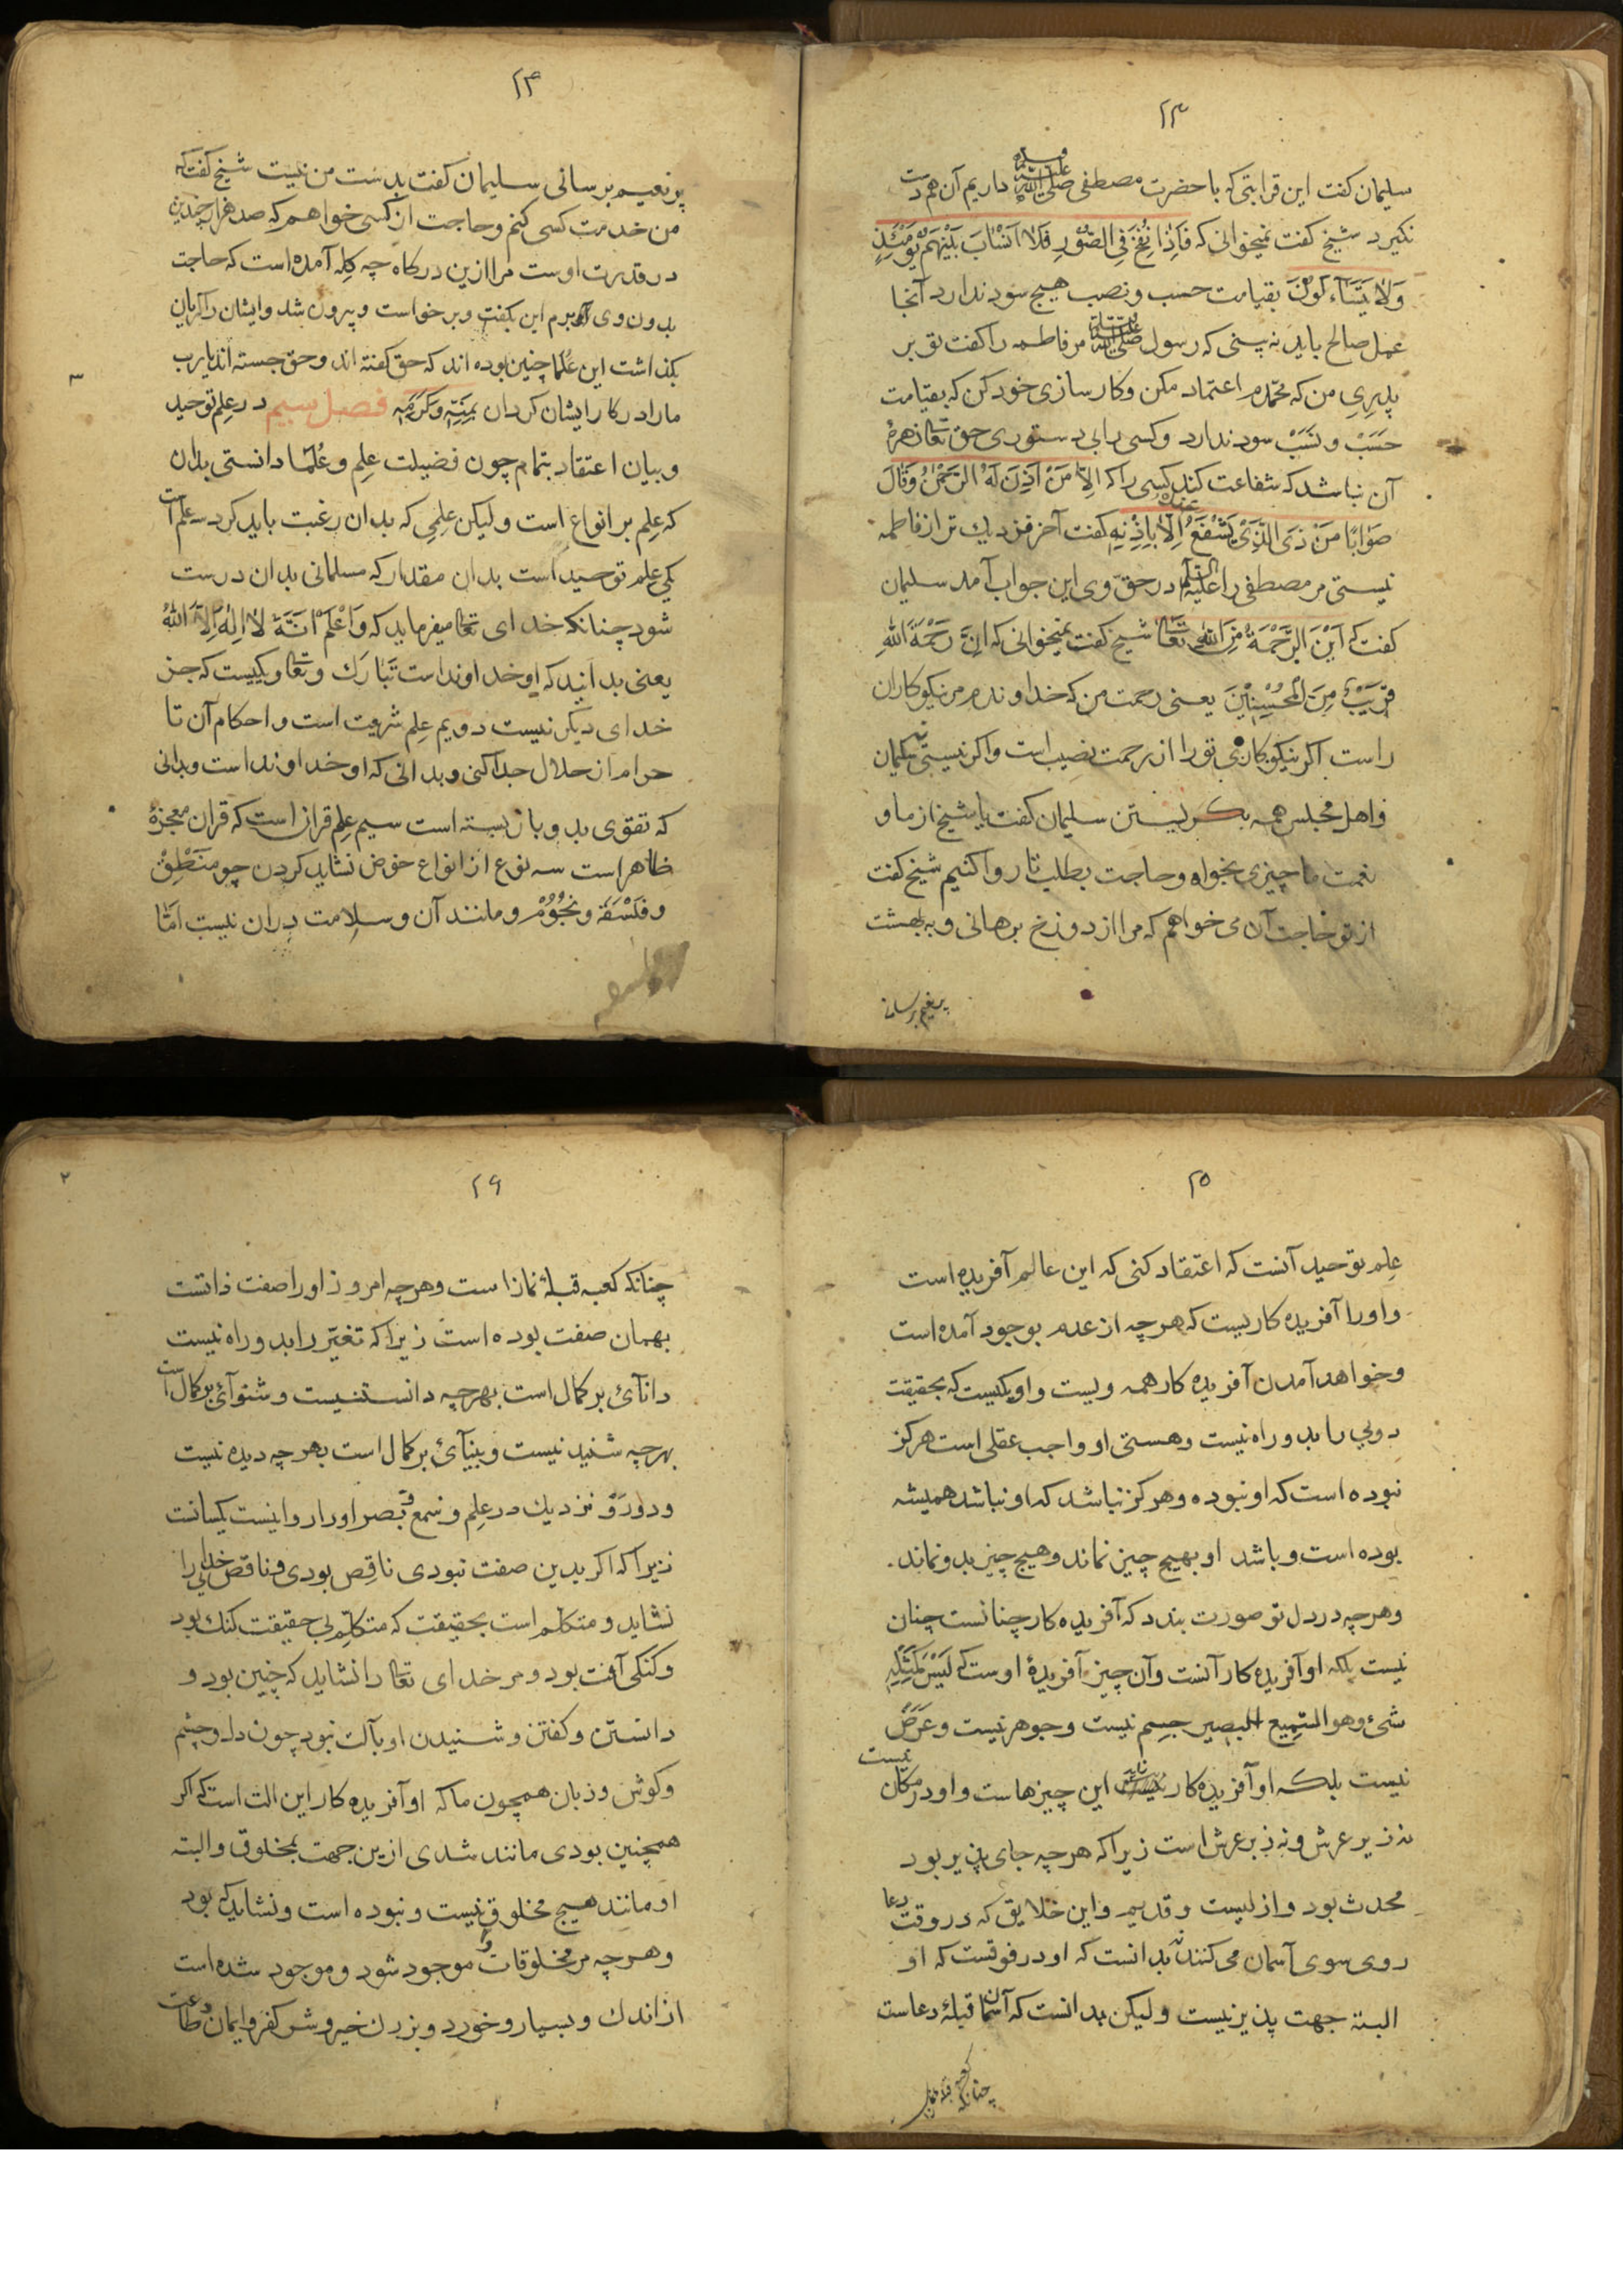 ۲۳
سلیمان کفت این قرابتی که با حضرت مصطفی صلی الله علیه وسلم داریم آن هم دست
نکیرد شیخ کفت نمیخوانی که فَاِذَا نُفِخَ فِی الصُّوْرِ فَلَا اَنْسَابَ بَیْنَهُمْ یَوْمَئِذٍ
وَلَا یَتَسَآءَلُوْنَ بقیامت حسب و نصب هیچ سود ندارد آنجا
عمل صالح باید نه بینی که رسول صلی الله علیه وسلم مر فاطمه را کفت تو بر
پدریِ من که محمّدم اعتماد مکن و کار سازی خود کن که بقیامت
حَسَبْ و نَسَبْ سود ندارد و کسی را بی دستوری حق تعالی زهرهٔ
آن نباشد که شفاعت کند کسی را که اِلَّا مَنْ اَذِنَ لَهُ الرَّحْمٰنُ وَقَالَ
صَوَابًا مَنْ ذَی الَّذِیْ یَشْفَعُ عِنْدَهُ اِلَّا بِاِذْنِهٖ کفت آخر نزدیك تر از فاطمه
نیستی مر مصطفی را علیه السلام در حقّ وی این جواب آمد سلیمان
کفت که اَیْنَ الرَّحْمَةُ مِنَ اللهِ تعالی شیخ کفت نمیخوانی که اِنَّ رَحْمَةَ اللهِ
قَرِیْبٌ مِنَ الْمُحْسِنِیْنَ یعنی رحمت من که خداوندم مر نیکو کاران
راست اکر نیکو کاری تو را از رحمت نصیب است و اکر نیستی نه سلیمان
و اهل مجلس همه بکریستن سلیمان کفت یا شیخ از ما و
نعمت ما چیزی بخواه و حاجت بطلب تا روا کنیم شیخ کفت
از تو حاجت آن می خواهم که مرا از دوزخ برهانی و به بهشت
پر نعیم برسانی
۲۴
پر نعیم برسانی سلیمان کفت بدست من نیست شیخ کفت که
من خدمت کسی کنم و حاجت از کسی خواهم که صد هزار چندین
در قدرت اوست مرا ازین درکاه چه کِله آمده است که حاجت
بدون وی برم این بکفت و بر خواست و بیرون شد و ایشان را کریان
بکذاشت این عُلما چنین بوده اند که حق کفته اند و حق جسته اند یا رب
ما را در کار ایشان کردان بِمَنِّهٖ وَکَرَمِهٖ فصل سیم در علم توحید
و بیان اعتقاد بتمام چون فضیلت علِم و عُلَما دانستی بدان
که عِلم بر انواع است و لیکن علمِی که بدان رغبت باید کرد سه علم است
یکی علم توحید است بدان مقدار که مسلمانی بدان درست
شود چنانکه خدای تعالی میفرماید که وَاعْلَمْ اَنَّهٗ لَا اِلٰهَ اِلَّا اللهُ
یعنی بدانید که او خداوند است تَبَارَك و تعالی و یکیست که جز
خدای دیکر نیست دویم عِلم شریعت است و احکام آن تا
حرام از حلال جدا کنی و بدانی که او خداوند است و بدانی
که تقوی بدو باز بسته است سیم علم قران است که قران معجزهٔ
ظاهر است سه نوع از انواع خوض نشاید کردن چو مَنْطِقْ
و فَلْسَفَه و نُجُوْمْ و مانند آن و سلامت دران نیست اَمَّا
۲۵
عِلم توحید آنست که اعتقاد کنی که این عالم آفریده است
و اورا آفریده کاریست که هر چه از عدم بوجود آمده است
و خواهد آمدن آفریده کار همه ویست و او یکیست که بحقیقت
دویی را بدو راه نیست و هستی او واجب عقلی است هر کز
نبوده است که او نبوده و هر کز نباشد که او نباشد همیشه
بوده است و باشد او بهیچ چیز نماند و هیچ چیز بدو نماند
و هر چه در دل تو صورت بندد که آفریده کار چنانست چنان
نیست بلکه او آفریده کار آنست و آن چیز آفریدهٔ اوست که لَیْسَ کَمِثْلِهٖ
شیء وهو السّمِیع البصیر جسم نیست و جوهر نیست و عَرَضْ
نیست بلکه او آفریده کار این چیزهاست و او در مکان نیست
نه زیر عرش و نه زبر عرش است زیرا که هر چه جای پذیر بود
محدث بود و ازلیست و قدیم و این خلایق که در وقت دعا
روی سوی آسمان می کنند نه بدانست که او در فوقست که او
البته جهت پذیر نیست و لیکن بدانست که آسمان قبلهٔ دعاست
چنانکه کعبه قبلهٔ نماز
۲۶
چنانکه کعبه قبلهٔ نماز است و هر چه امروز اورا صفت ذاتست
بهمان صفت بوده است زیرا که تغیّر را بدو راه نیست
دانائی بر کمال است بهر چه دانستنیست و شنوائی بر کمال است
بهر چه شنید نیست و بینائی بر کمال است بهر چه دیده نیست
و دور و نزدیك در علِم و سمع و بصر اورا روا نیست یکسانست
زیرا که اکر بدین صفت نبودی ناقِص بودی و ناقص خدایی را
نشاید و متکلم است بحقیقت که متکلّم بی حقیقت کنك بود
و کنکی آفت بود و مر خدای تعالی را نشاید که چنین بود و
دانستن و کفتن و شنیدن او بآلت نبود چون دل و چشم
و کوش و زبان همچون ما که او آفریده کار این الت است که اکر
همچنین بودی مانند شدی ازین جهت بمخلوق و البته
او مانند هیچ مخلوق نیست و نبوده است و نشاید که بود
و هر چه مر مخلوقات را موجود شود و موجود شده است
از اندك و بسیار و خورد و بزرك خیر و شر کفر و ایمان و طاعت